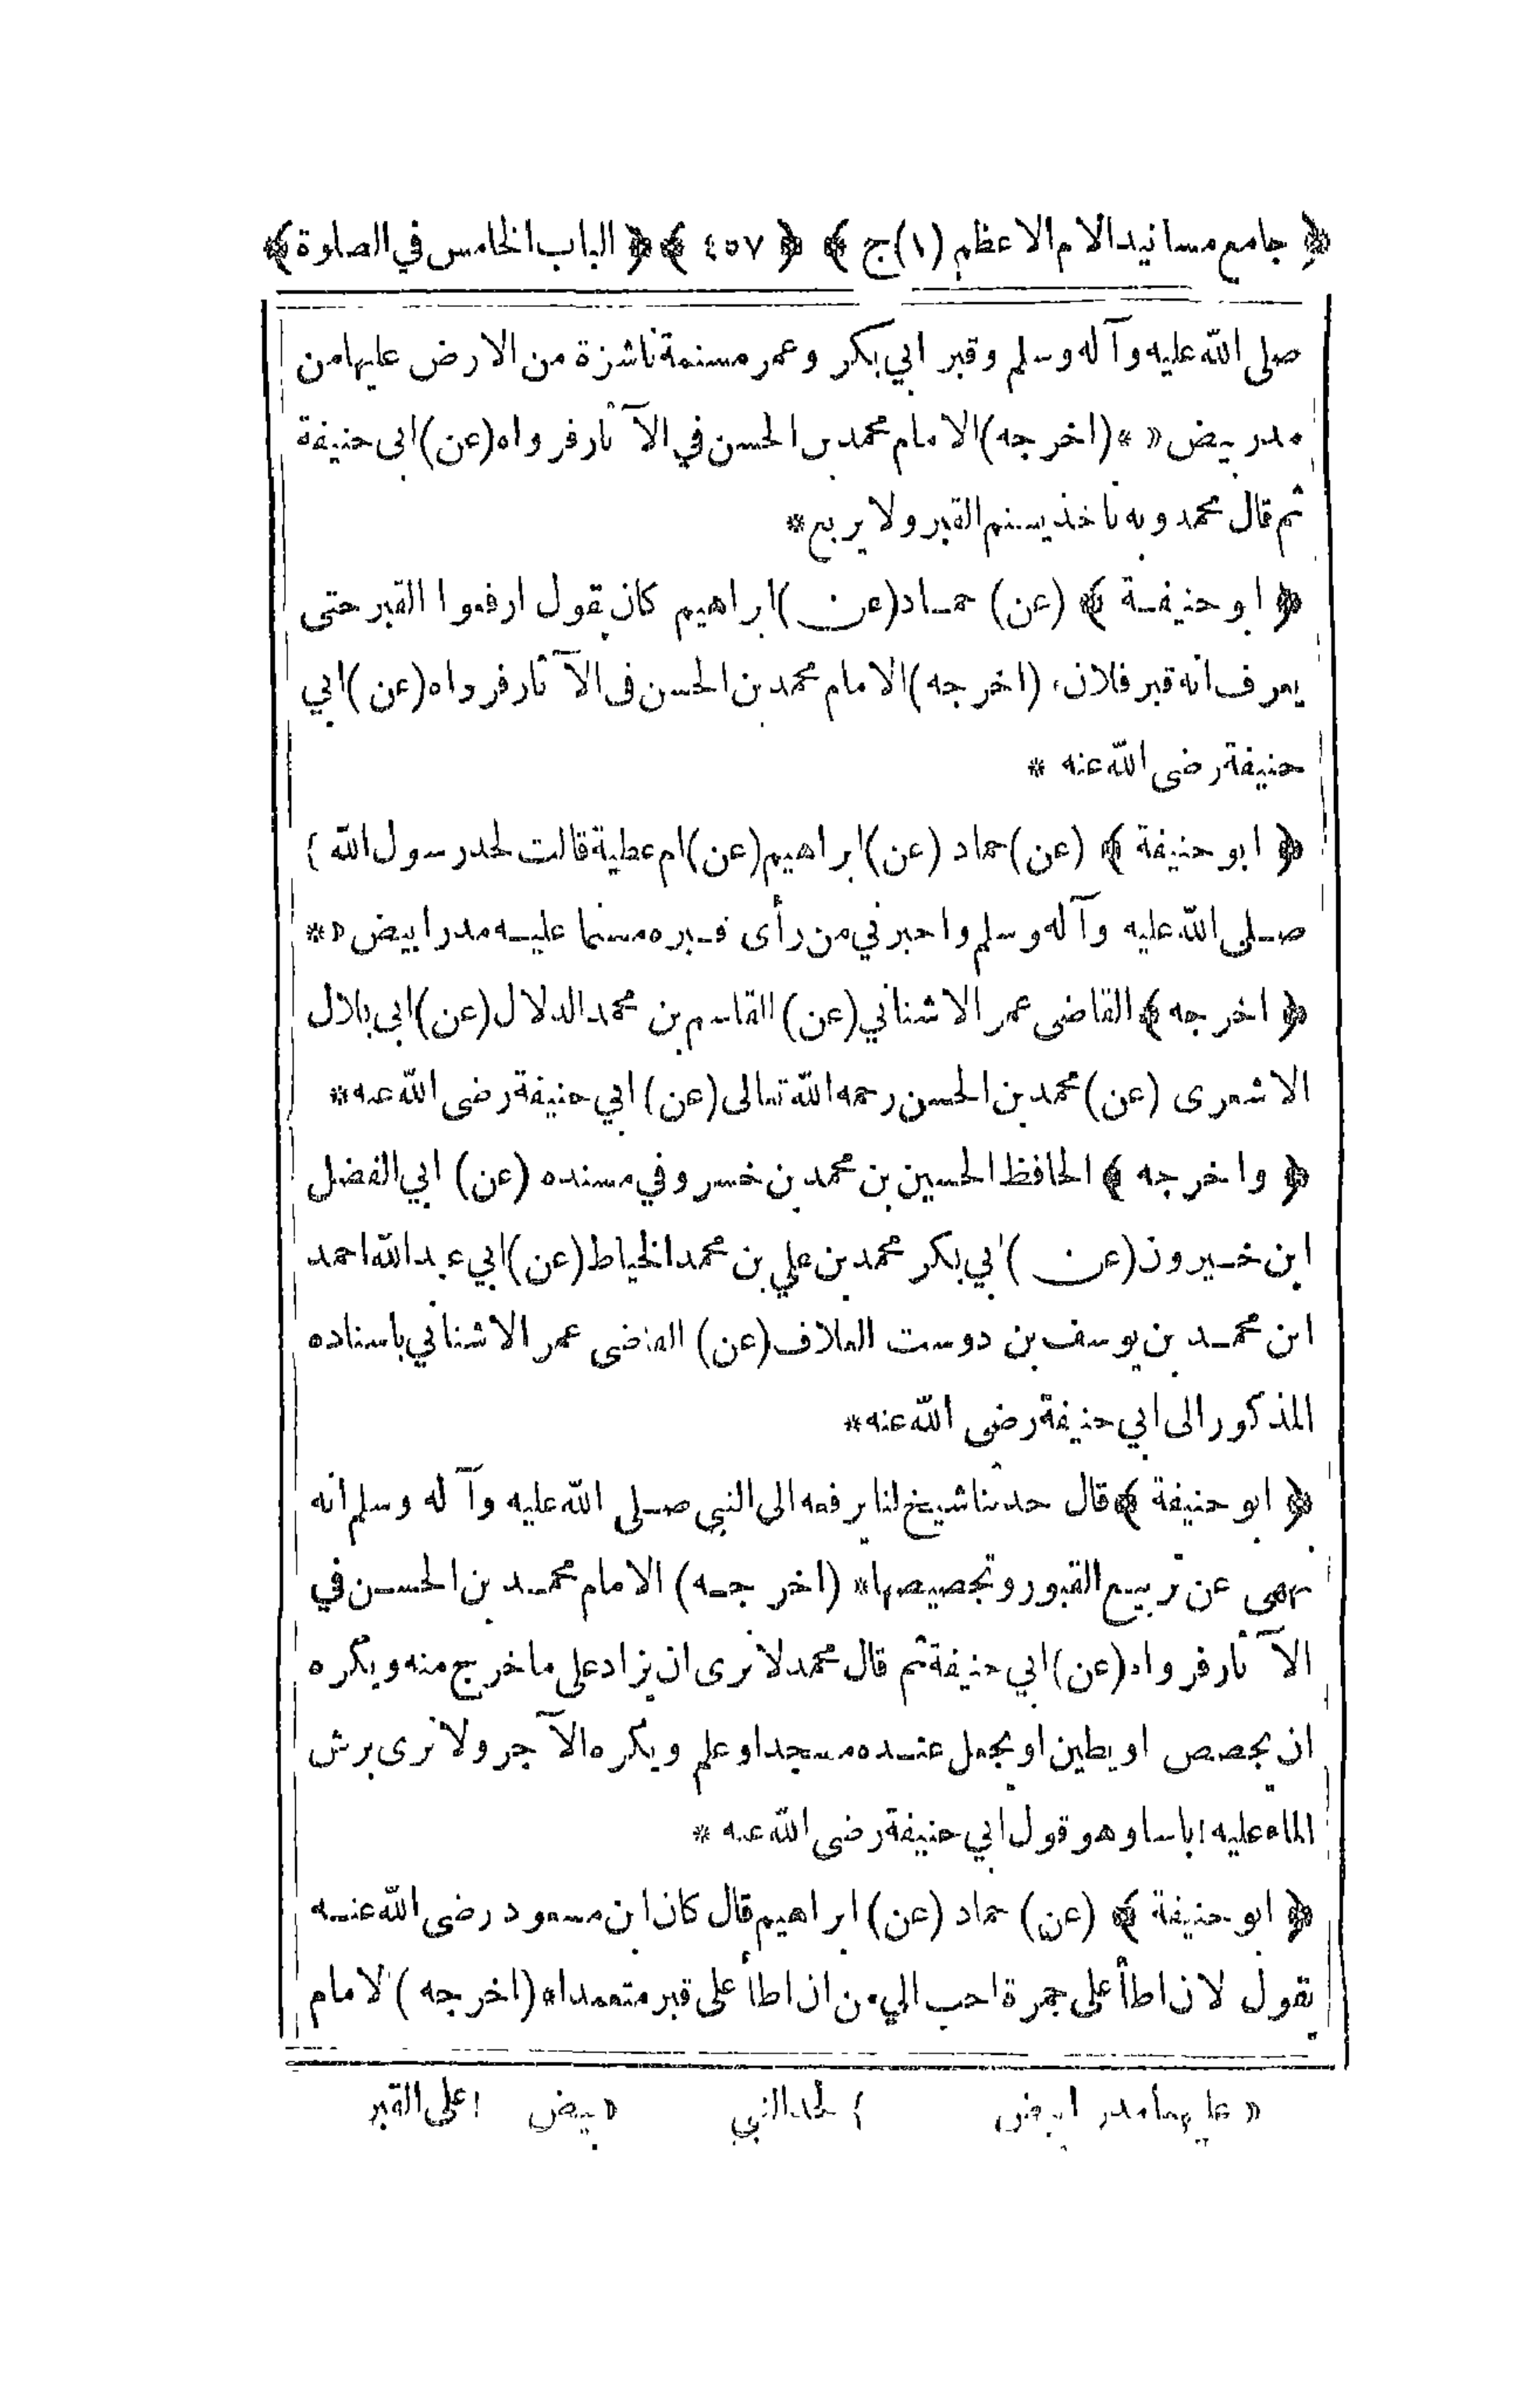 ﴿ جامع مسانيد الامام الاعظم (١) ج ﴾ ﴿ ٤٥٧ ﴾ ﴿ الباب الخامس في الصلوة ﴾
صلى الله عليه وآله وسلم وقبر ابي بكر وعمر مسنمة ناشزة من الارض عليها من
مدر بيض « * (اخرجه) الامام محمد بن الحسن في الآثار فرواه (عن) ابى حنيفة
ثم قال محمد وبه ناخذ يسنم القبر ولا يربع *
﴿ ابو حنيفة ﴾ (عن) حماد (عن) ابراهيم كان يقول ارفعوا القبر حتى
يعرف انه قبر فلان، (اخرجه) الامام محمد بن الحسن فى الآثار فرواه (عن) ابي
حنيفة رضى الله عنه *
﴿ ابو حنيفة ﴾ (عن) حماد (عن) ابراهيم (عن) ام عطية قالت لحد رسول الله }
صلى الله عليه وآله وسلم واخبرني من رأى قبره مسنما عليه مدر ابيض » *
﴿ اخرجه ﴾ القاضى عمر الاشناني (عن) القاسم بن محمد الدلال (عن) ابي بلال
الاشعرى (عن) محمد بن الحسن رحمه الله تعالى (عن) ابي حنيفة رضى الله عنه *
﴿ واخرجه ﴾ الحافظ الحسين بن محمد بن خسرو في مسنده (عن) ابي الفضل
ابن خيرون (عن) ابي بكر محمد بن علي بن محمد الخياط (عن) ابي عبد الله احمد
ابن محمد بن يوسف بن دوست العلاف (عن) القاضى عمر الاشناني باسناده
المذكور الى ابي حنيفة رضى الله عنه *
﴿ ابو حنيفة ﴾ قال حدثنا شيخ لنا يرفعه الى النبي صلى الله عليه وآله وسلم انه
نهى عن تربيع القبور وتجصيصها * (اخرجه) الامام محمد بن الحسن في
الآثار فرواه (عن) ابي حنيفة ثم قال محمد لا نرى ان يزاد على ما خرج منه ويكره
ان يجصص او يطين او يجعل عنده مسجدا او علم ويكره الآجر ولا نرى برش
الماء عليه ! باسا وهو قول ابي حنيفة رضى الله عنه *
﴿ ابو حنيفة ﴾ (عن) حماد (عن) ابراهيم قال كان ابن مسعود رضى الله عنه
يقول لان اطأ على جمرة احب الي من ان اطأ على قبر متعمدا * (اخرجه) الامام
« عليها مدر ابيض } لحد النبي » بيض ! على القبر